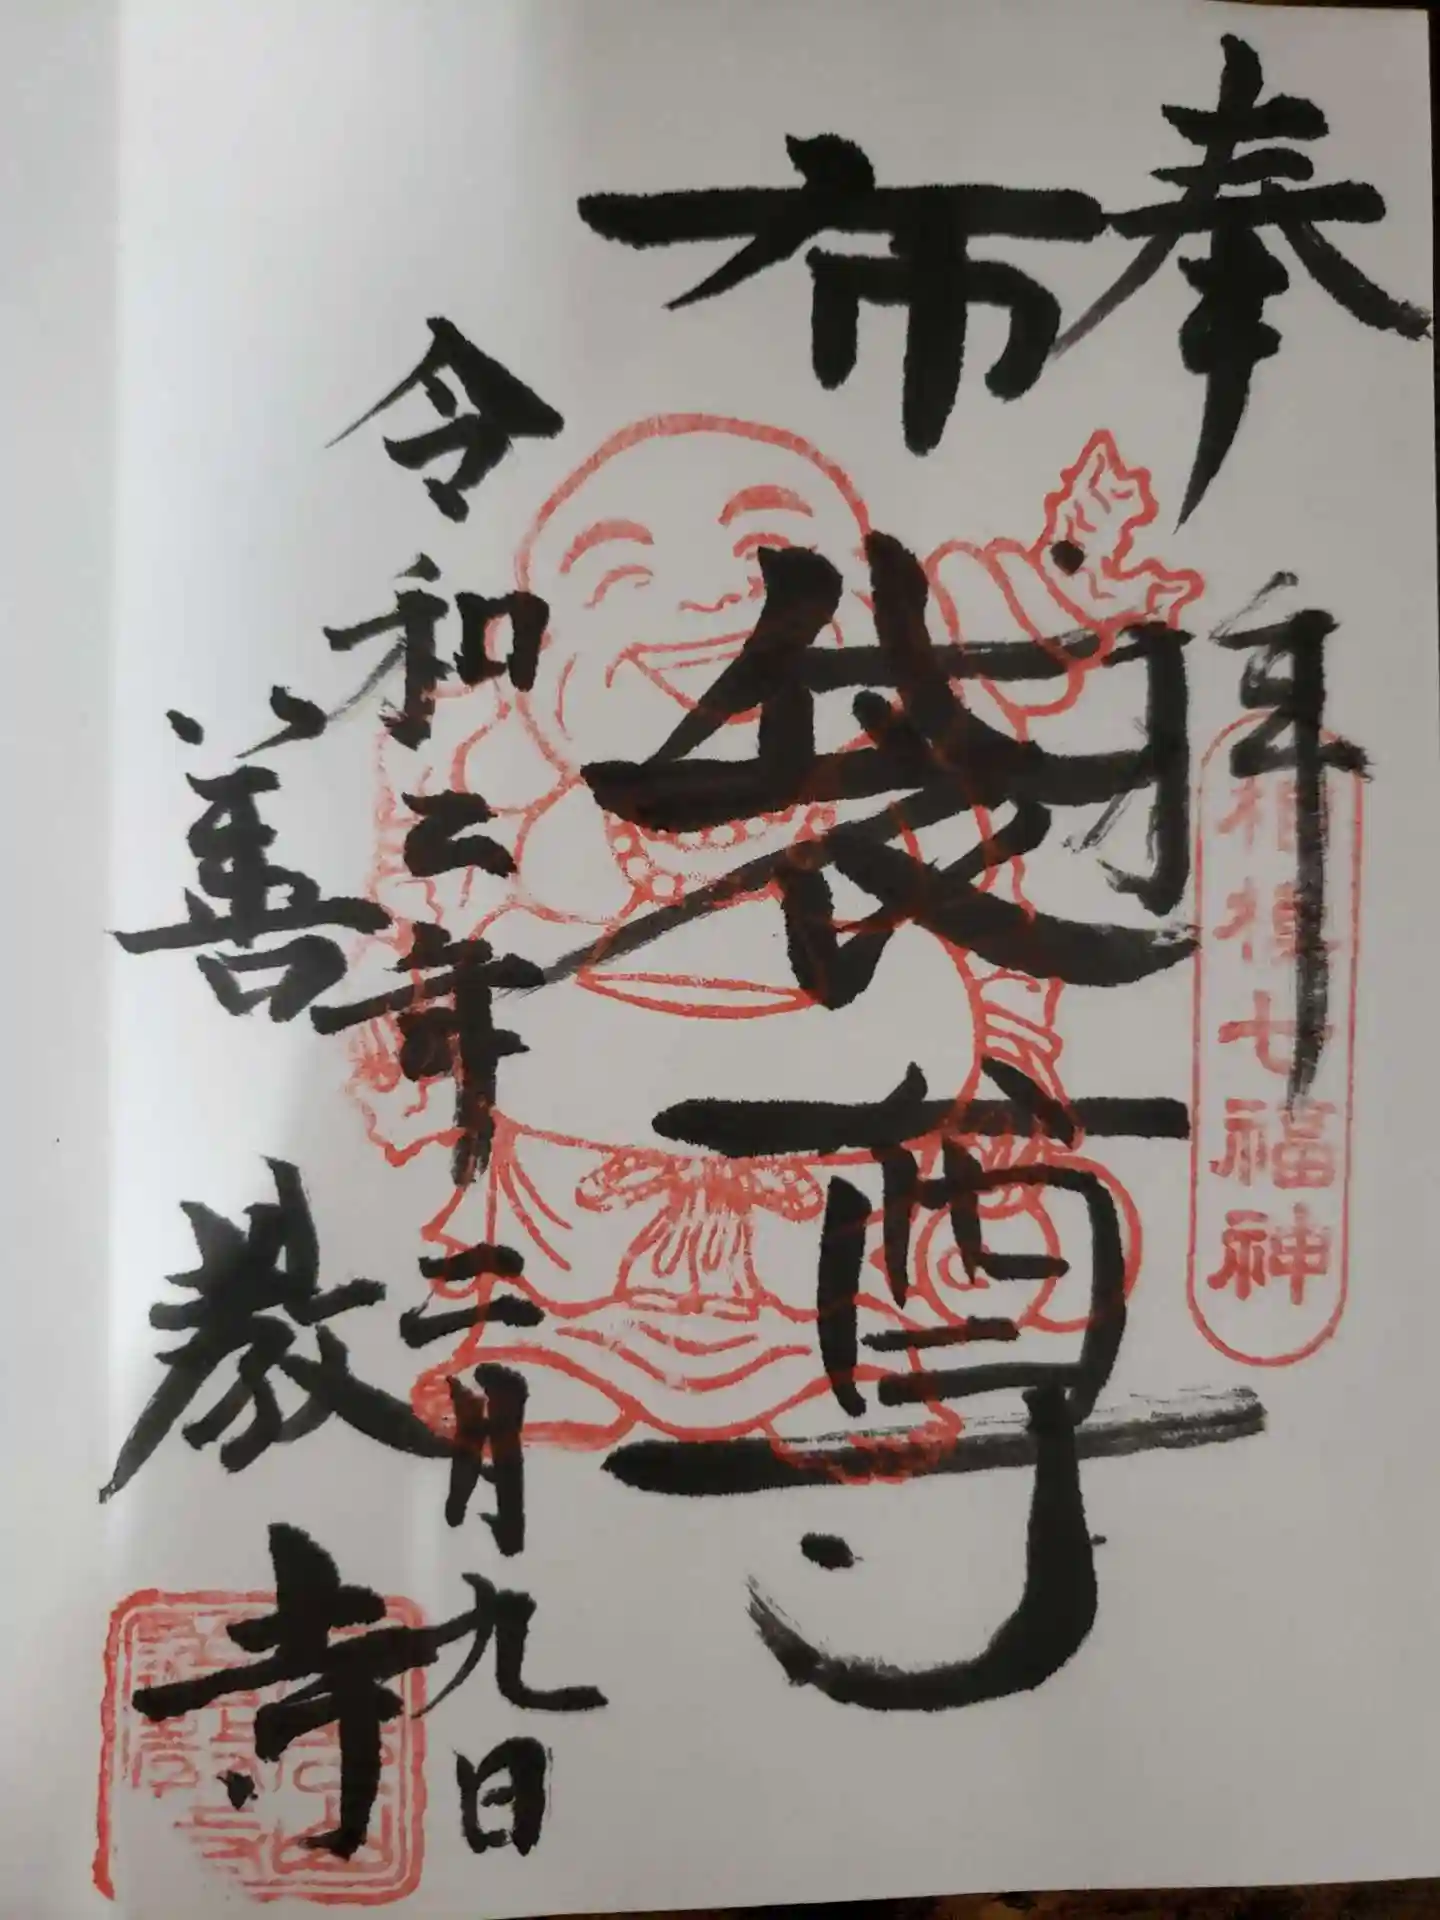 奉拝
相模七福神
布袋尊
令和二年二月九日
善教寺